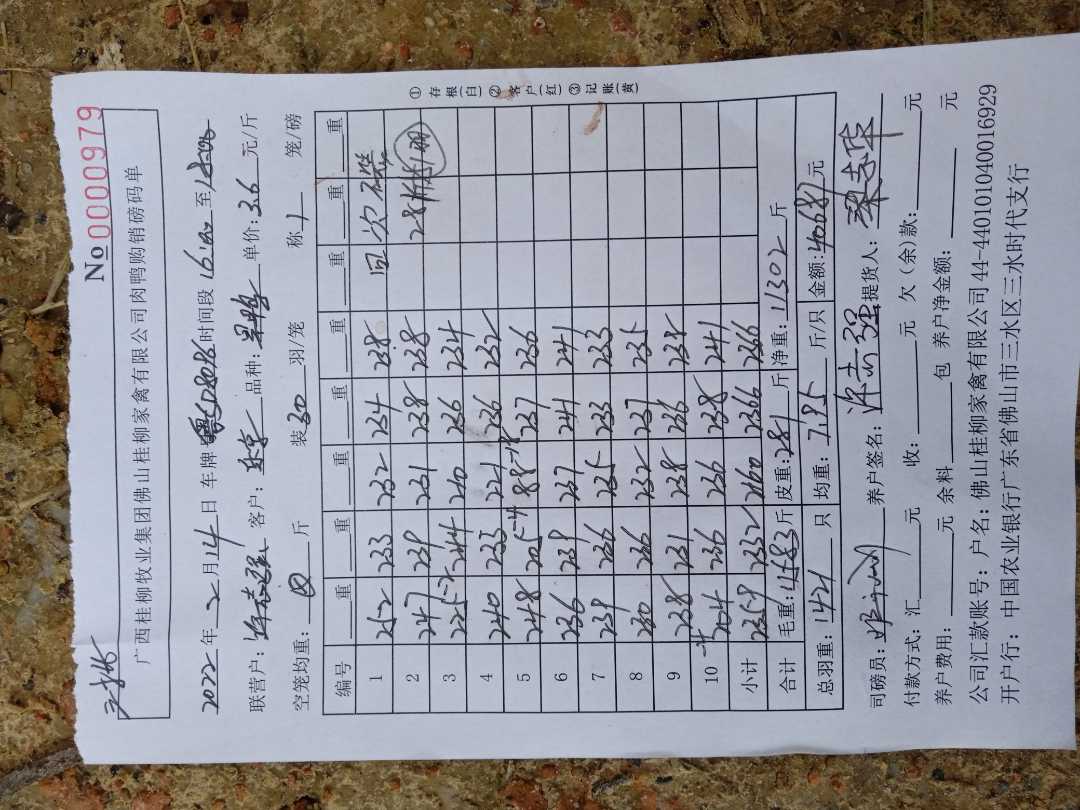 No 0000979
广西桂柳牧业集团佛山桂柳家禽有限公司肉鸭购销磅码单
2022年2月14日 车牌 时间段 至
联营户: 客户: 品种: 单价:3.6元/斤
空笼均重: 斤 装30羽/笼 称1笼/磅
编号 重 重 重 重 重 重 重 重
1 252 233 232 234 238 回次磅
2 247 239 231 238 238
3 225-2 244 240 236 234
4 240 235 221 236 232
5 248 205-4 88-18 237 236
6 236 239 237 241 241
7 239 236 235 233 233
8 230 236 232 237 235
9 238 231 238 236 238
10 204-4 236 236 238 241
小计 2359 2332 2160 2366 2366
合计 毛重:11583斤 皮重:281斤 净重:11302斤
总羽重:1421只 均重:7.95斤/只 金额:40687元
司磅员: 养户签名: 提货人:
付款方式:汇 元 收: 元 欠(余)款: 元
养户费用: 元 余料 包 养户净金额: 元
公司汇款账号:户名:佛山桂柳家禽有限公司44-440101040016929
开户行:中国农业银行广东省佛山市三水区三水时代支行
①存根(白)②客户(红)③记账(黄)